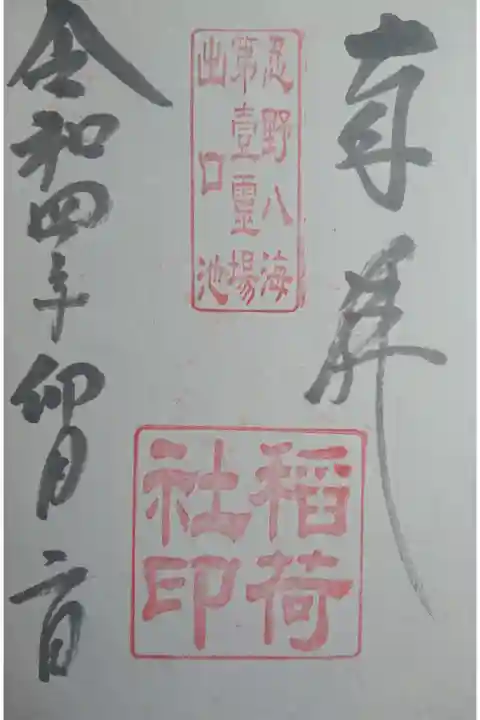 奉拝
忍野八海
第壹霊場
出口池
稲荷
社印
令和四年卯月二日